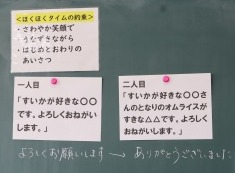 <ほくほくタイムの約束>
・さわやか笑顔で
・うなずきながら
・はじめとおわりの
あいさつ
一人目
「すいかが好きな〇〇
です。よろしくおねがい
します。」
二人目
「すいかが好きな〇〇さ
んのとなりのオムライスが
すきな△△です。よろしく
おねがいします。」
よろしくお願いします → ありがとうございました